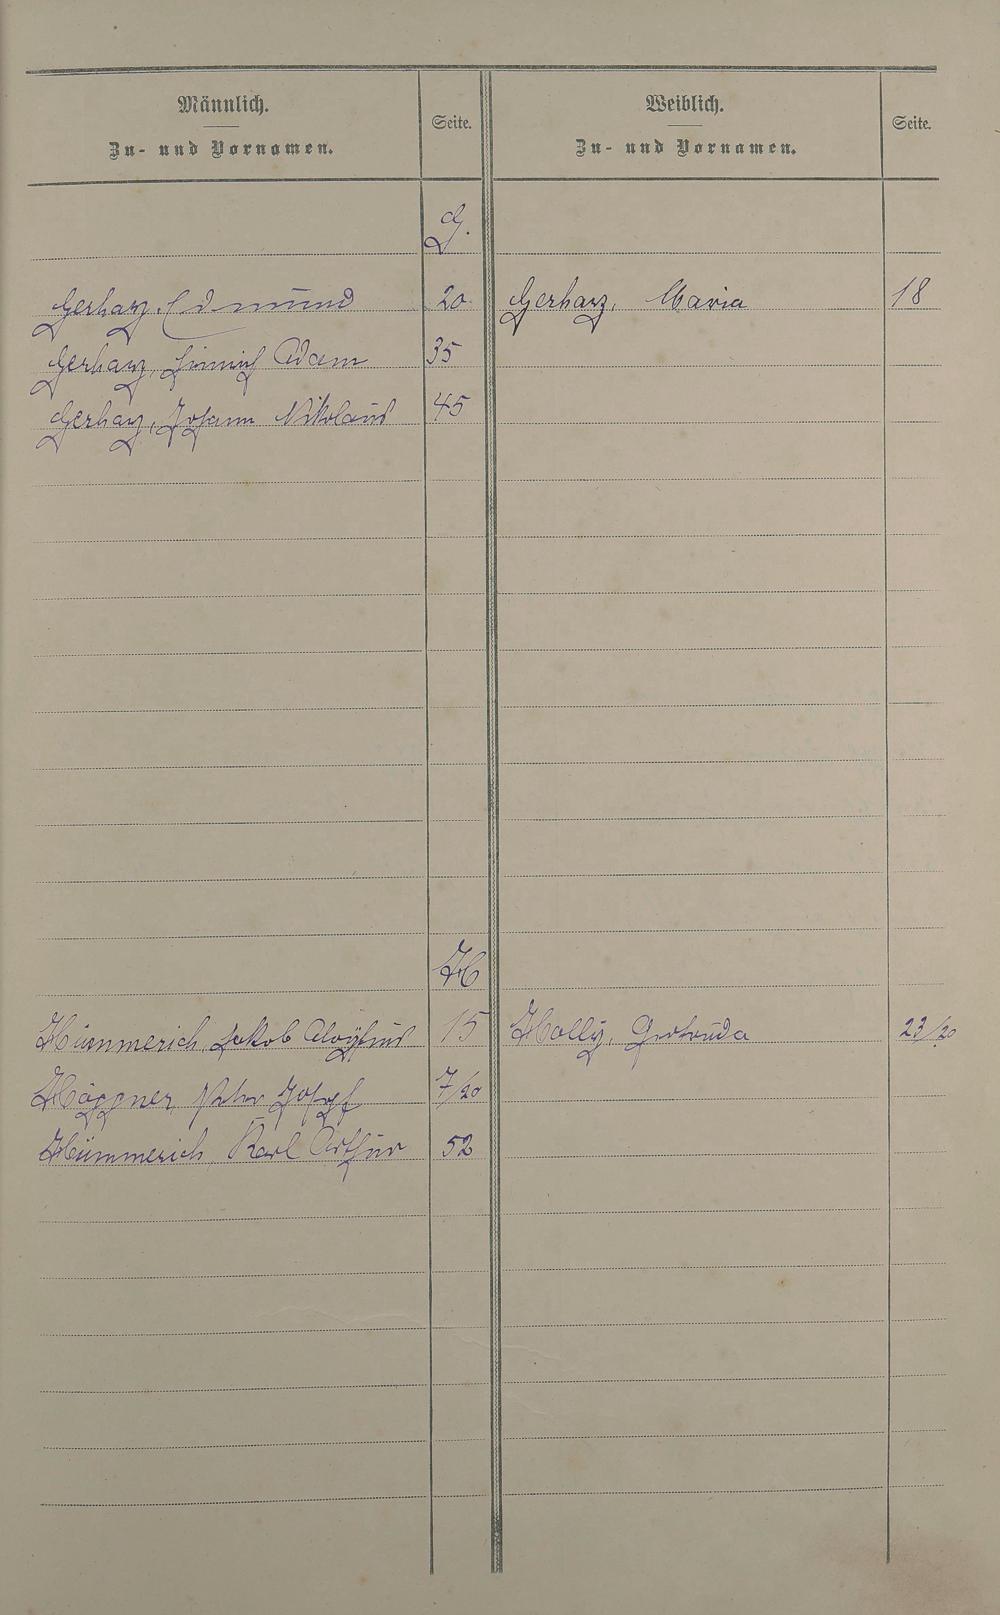 Männlich.
Zu- und Vornamen.
Seite.
Weiblich.
Zu- und Vornamen.
Seite.
G.
Gerharz, Edmund 20. Gerharz, Maria 18
Gerharz, Heinrich Adam 35
Gerharz, Johann Nikolaus 45
H
Hümmerich, Jakob Aloysius 15 Holly, Gertruda 23/20
Höppner, Peter Josef 7/20
Hümmerich, Karl Arthur 52